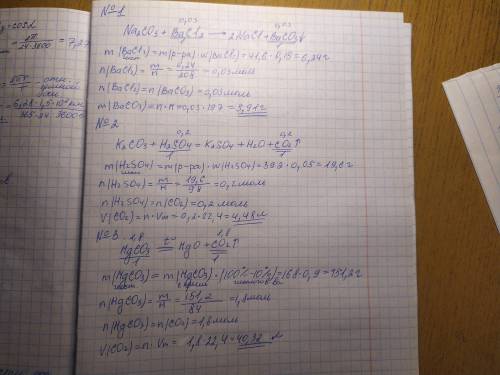 №1
0,03 0,03
Na2CO3 + BaCl2 → 2NaCl + BaCO3↓
m(BaCl2) = m(р-ра) · w(BaCl2) = 41,6 · 0,15 = 6,24г
n(BaCl2) = m/M = 6,24/208 = 0,03моль
n(BaCl2) = n(BaCO3) = 0,03моль
m(BaCO3) = n · M = 0,03 · 197 = 5,91г
№2
0,2 0,2
K2CO3 + H2SO4 = K2SO4 + H2O + CO2↑
1 1
m(H2SO4) = m(р-ра) · w(H2SO4) = 392 · 0,05 = 19,6г
n(H2SO4) = m/M = 19,6/98 = 0,2моль
n(H2SO4) = n(CO2) = 0,2 моль
V(CO2) = n · Vm = 0,2 · 22,4 = 4,48л
№3 1,8 1,8
MgCO3 =t°= MgO + CO2↑
1 1
m(MgCO3) = m(MgCO3) · (100%-10%) = 168 · 0,9 = 151,2г
n(MgCO3) = m/M = 151,2/84 = 1,8моль
n(MgCO3) = n(CO2) = 1,8моль
V(CO2) = n · Vm = 1,8 · 22,4 = 40,32 л